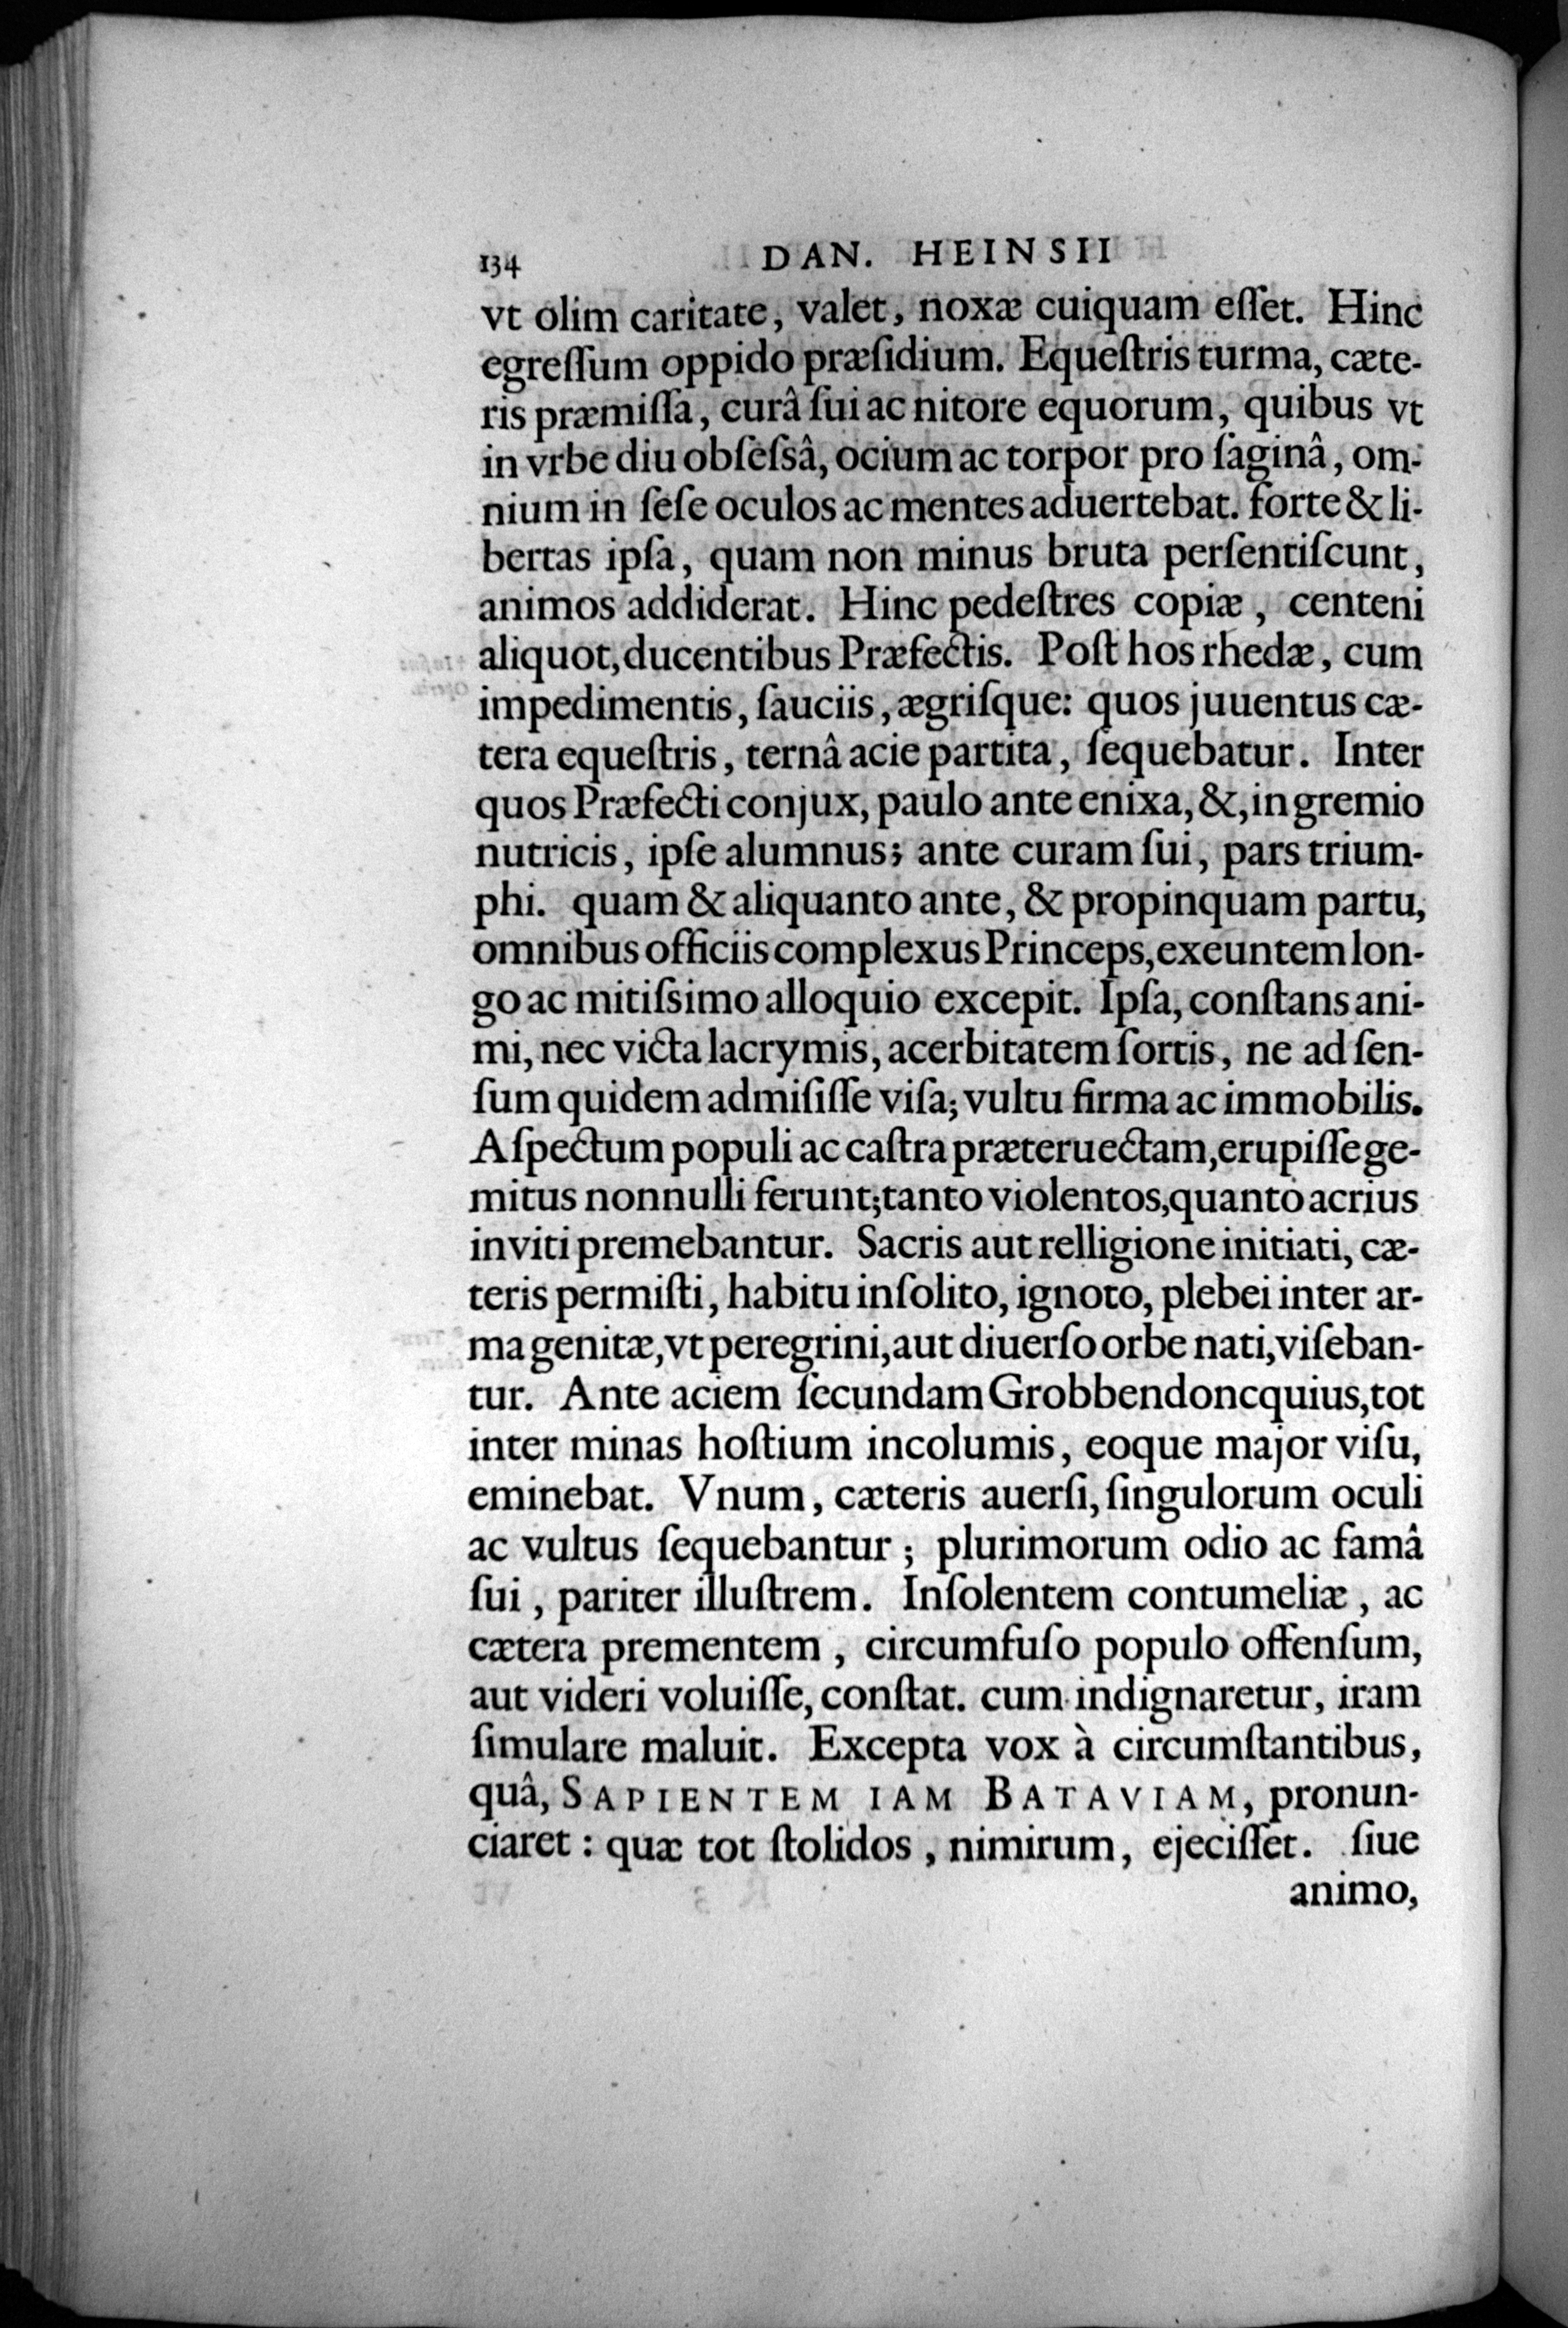 134 DAN. HEINSII
vt olim caritate, valet, noxæ cuiquam eſſet. Hinc
egreſſum oppido præſidium. Equeſtris turma, cæte-
ris præmiſſa, curâ ſui ac nitore equorum, quibus vt
in vrbe diu obſeſsâ, ocium ac torpor pro ſaginâ, om-
nium in ſeſe oculos ac mentes aduertebat. forte & li-
bertas ipſa, quam non minus bruta perſentiſcunt,
animos addiderat. Hinc pedeſtres copiæ, centeni
aliquot, ducentibus Præfectis. Poſt hos rhedæ, cum
impedimentis, ſauciis, ægriſque: quos juuentus cæ-
tera equeſtris, ternâ acie partita, ſequebatur. Inter
quos Præfecti conjux, paulo ante enixa, &, in gremio
nutricis, ipſe alumnus; ante curam ſui, pars trium-
phi. quam & aliquanto ante, & propinquam partu,
omnibus officiis complexus Princeps, exeuntem lon-
go ac mitiſsimo alloquio excepit. Ipſa, conſtans ani-
mi, nec victa lacrymis, acerbitatem ſortis, ne ad ſen-
ſum quidem admiſiſſe viſa; vultu firma ac immobilis.
Aſpectum populi ac caſtra præteruectam, erupiſſe ge-
mitus nonnulli ferunt; tanto violentos, quanto acrius
inviti premebantur. Sacris aut relligione initiati, cæ-
teris permiſti, habitu inſolito, ignoto, plebei inter ar-
ma genitæ, vt peregrini, aut diuerſo orbe nati, viſeban-
tur. Ante aciem ſecundam Grobbendoncquius, tot
inter minas hoſtium incolumis, eoque major viſu,
eminebat. Vnum, cæteris auerſi, ſingulorum oculi
ac vultus ſequebantur; plurimorum odio ac famâ
ſui, pariter illuſtrem. Inſolentem contumeliæ, ac
cætera prementem, circumfuſo populo offenſum,
aut videri voluiſſe, conſtat. cum indignaretur, iram
ſimulare maluit. Excepta vox à circumſtantibus,
quâ, SAPIENTEM IAM BATAVIAM, pronun-
ciaret: quæ tot ſtolidos, nimirum, ejeciſſet. ſiue
animo,